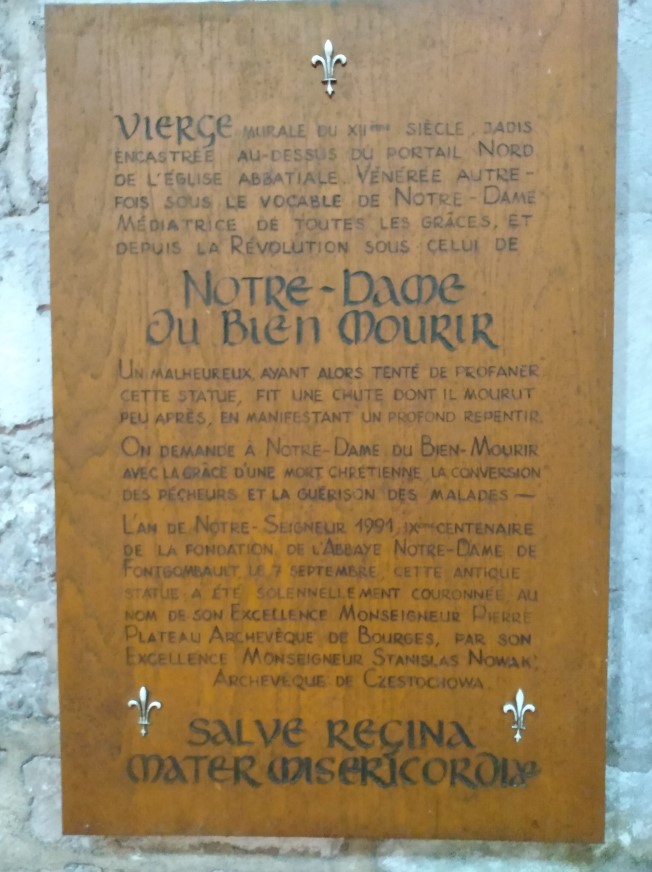 VIERGE MURALE DU XIIème SIÈCLE, JADIS
ENCASTRÉE AU-DESSUS DU PORTAIL NORD
DE L'ÉGLISE ABBATIALE. VÉNÉRÉE AUTRE-
FOIS SOUS LE VOCABLE DE NOTRE-DAME
MÉDIATRICE DE TOUTES LES GRÂCES, ET
DEPUIS LA RÉVOLUTION SOUS CELUI DE
NOTRE-DAME
DU BIEN MOURIR
UN MALHEUREUX AYANT ALORS TENTÉ DE PROFANER
CETTE STATUE, FIT UNE CHUTE DONT IL MOURUT
PEU APRÈS, EN MANIFESTANT UN PROFOND REPENTIR.
ON DEMANDE À NOTRE-DAME DU BIEN-MOURIR
AVEC LA GRÂCE D'UNE MORT CHRÉTIENNE, LA CONVERSION
DES PÉCHEURS ET LA GUÉRISON DES MALADES —
L'AN DE NOTRE-SEIGNEUR 1991, IXème CENTENAIRE
DE LA FONDATION DE L'ABBAYE NOTRE-DAME DE
FONTGOMBAULT, LE 7 SEPTEMBRE, CETTE ANTIQUE
STATUE A ÉTÉ SOLENNELLEMENT COURONNÉE AU
NOM DE SON EXCELLENCE MONSEIGNEUR PIERRE
PLATEAU ARCHEVÊQUE DE BOURGES, PAR SON
EXCELLENCE MONSEIGNEUR STANISLAS NOWAK,
ARCHEVÊQUE DE CZESTOCHOWA.
SALVE REGINA
MATER MISERICORDIÆ